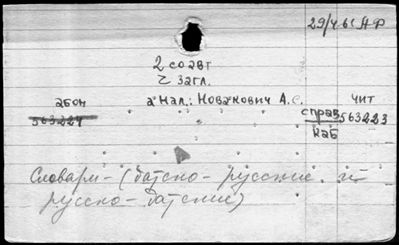 29/4 61 АФ
2 соавт
2 загл.
абон а нал.: Новакович А.С. чит
563224 справ 563223
каб
Словари - (датско - русские и
русско - датские)